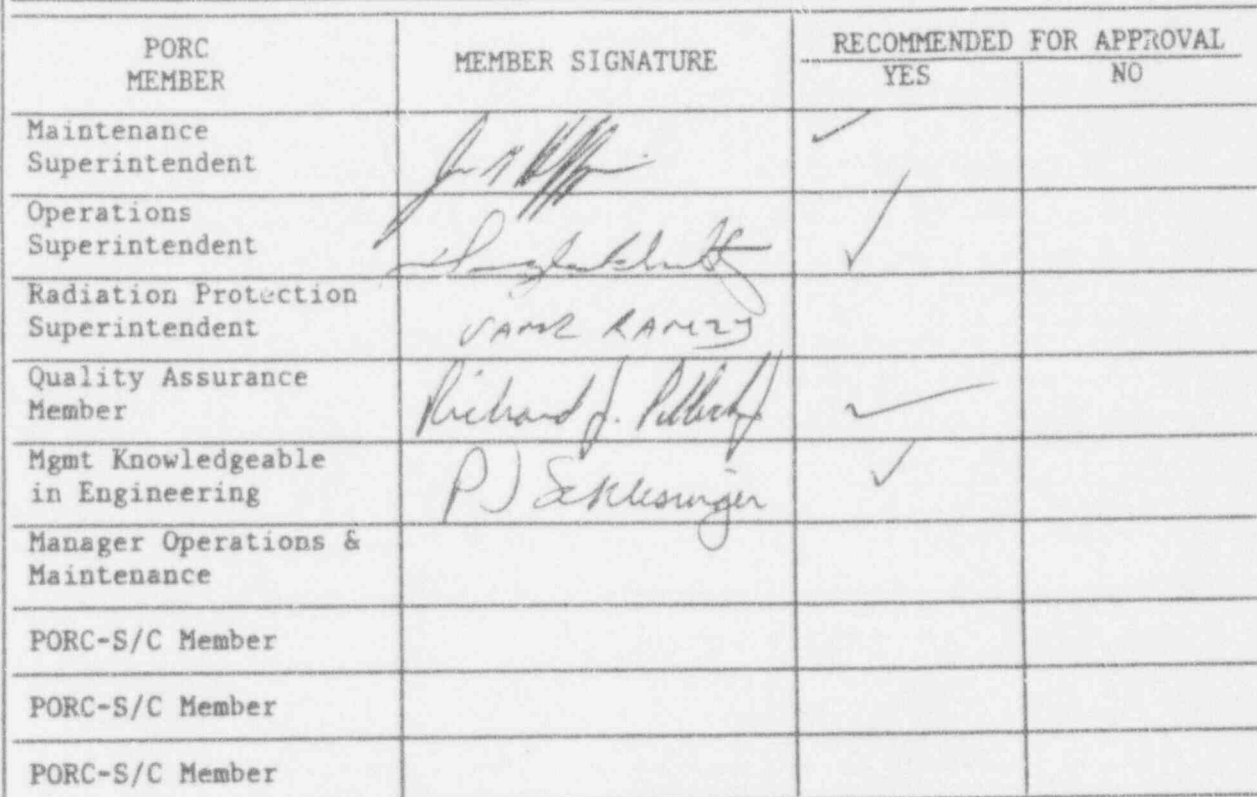 PORC
MEMBER
MEMBER SIGNATURE
RECOMMENDED FOR APPROVAL
YES
NO
Maintenance
Superintendent
Operations
Superintendent
Radiation Protection
Superintendent
Quality Assurance
Member
Richard J.
Mgmt Knowledgeable
in Engineering
P J Schlesinger
Manager Operations &
Maintenance
PORC-S/C Member
PORC-S/C Member
PORC-S/C Member